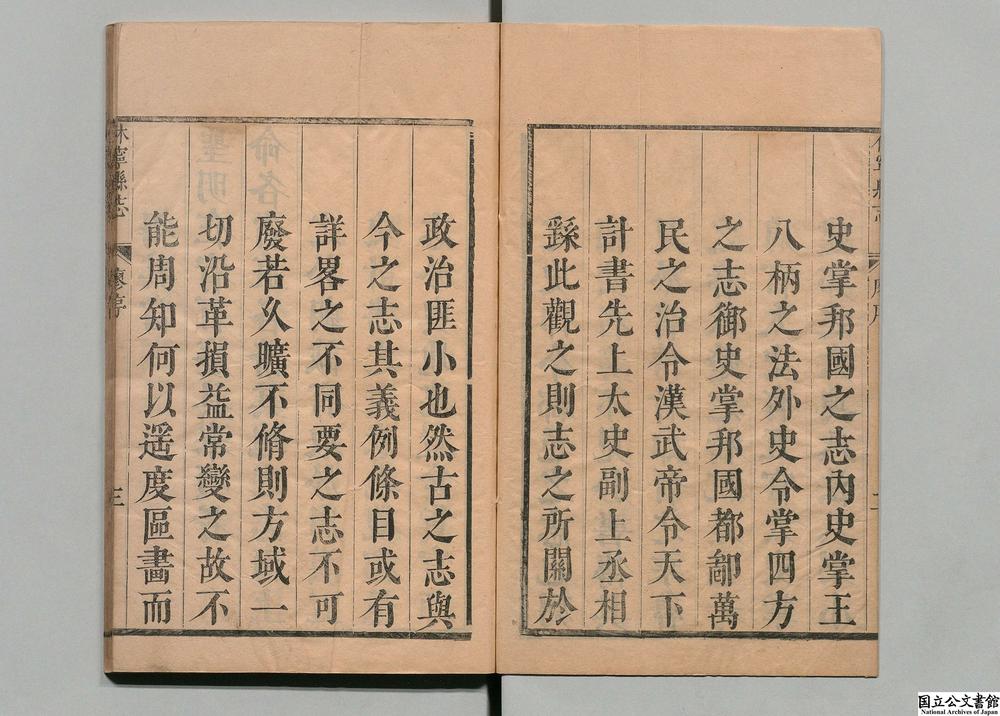 史掌邦國之志內史掌王
八柄之法外史令掌四方
之志御史掌邦國都鄙萬
民之治令漢武帝令天下
計書先上太史副上丞相
繇此觀之則志之所關於
政治匪小也然古之志與
今之志其義例條目或有
詳畧之不同要之志不可
廢若久曠不脩則方域一
切沿革損益常變之故不
能周知何以遥度區畵而
休寧縣志
廖序
三
国立公文書館
National Archives of Japan